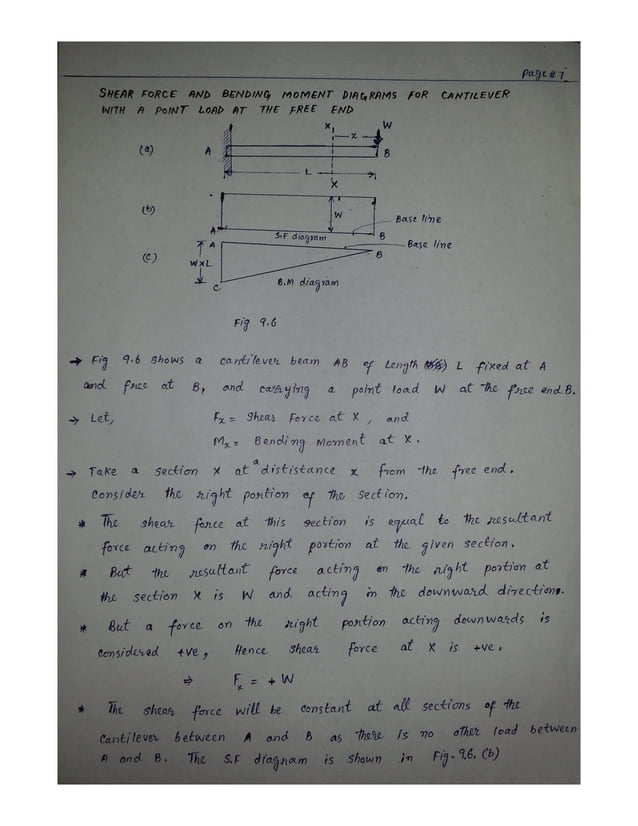 Page # 7
SHEAR FORCE AND BENDING MOMENT DIAGRAMS FOR CANTILEVER
WITH A POINT LOAD AT THE FREE END
X W
x
(a) A B
L
X
(b) W
Base line
A S.F diagram B
A Base line
(c) W×L B
C B.M diagram
Fig 9.6
→ Fig 9.6 Shows a cantilever beam AB of Length L fixed at A
and free at B, and carrying a point load W at the free end B.
→ Let, Fx = Shear Force at X, and
Mx = Bending Moment at X.
→ Take a section X at a dististance x from the free end.
Consider the right portion of the section.
* The shear force at this section is equal to the resultant
force acting on the right portion at the given section.
* But the resultant force acting on the right portion at
the section X is W and acting in the downward direction.
* But a force on the right portion acting downwards is
considered +ve, Hence shear force at X is +ve.
⇒ Fx = + W
* The shear force will be constant at all sections of the
Cantilever between A and B as there is no other load between
A and B. The S.F diagram is shown in Fig. 9.6. (b)